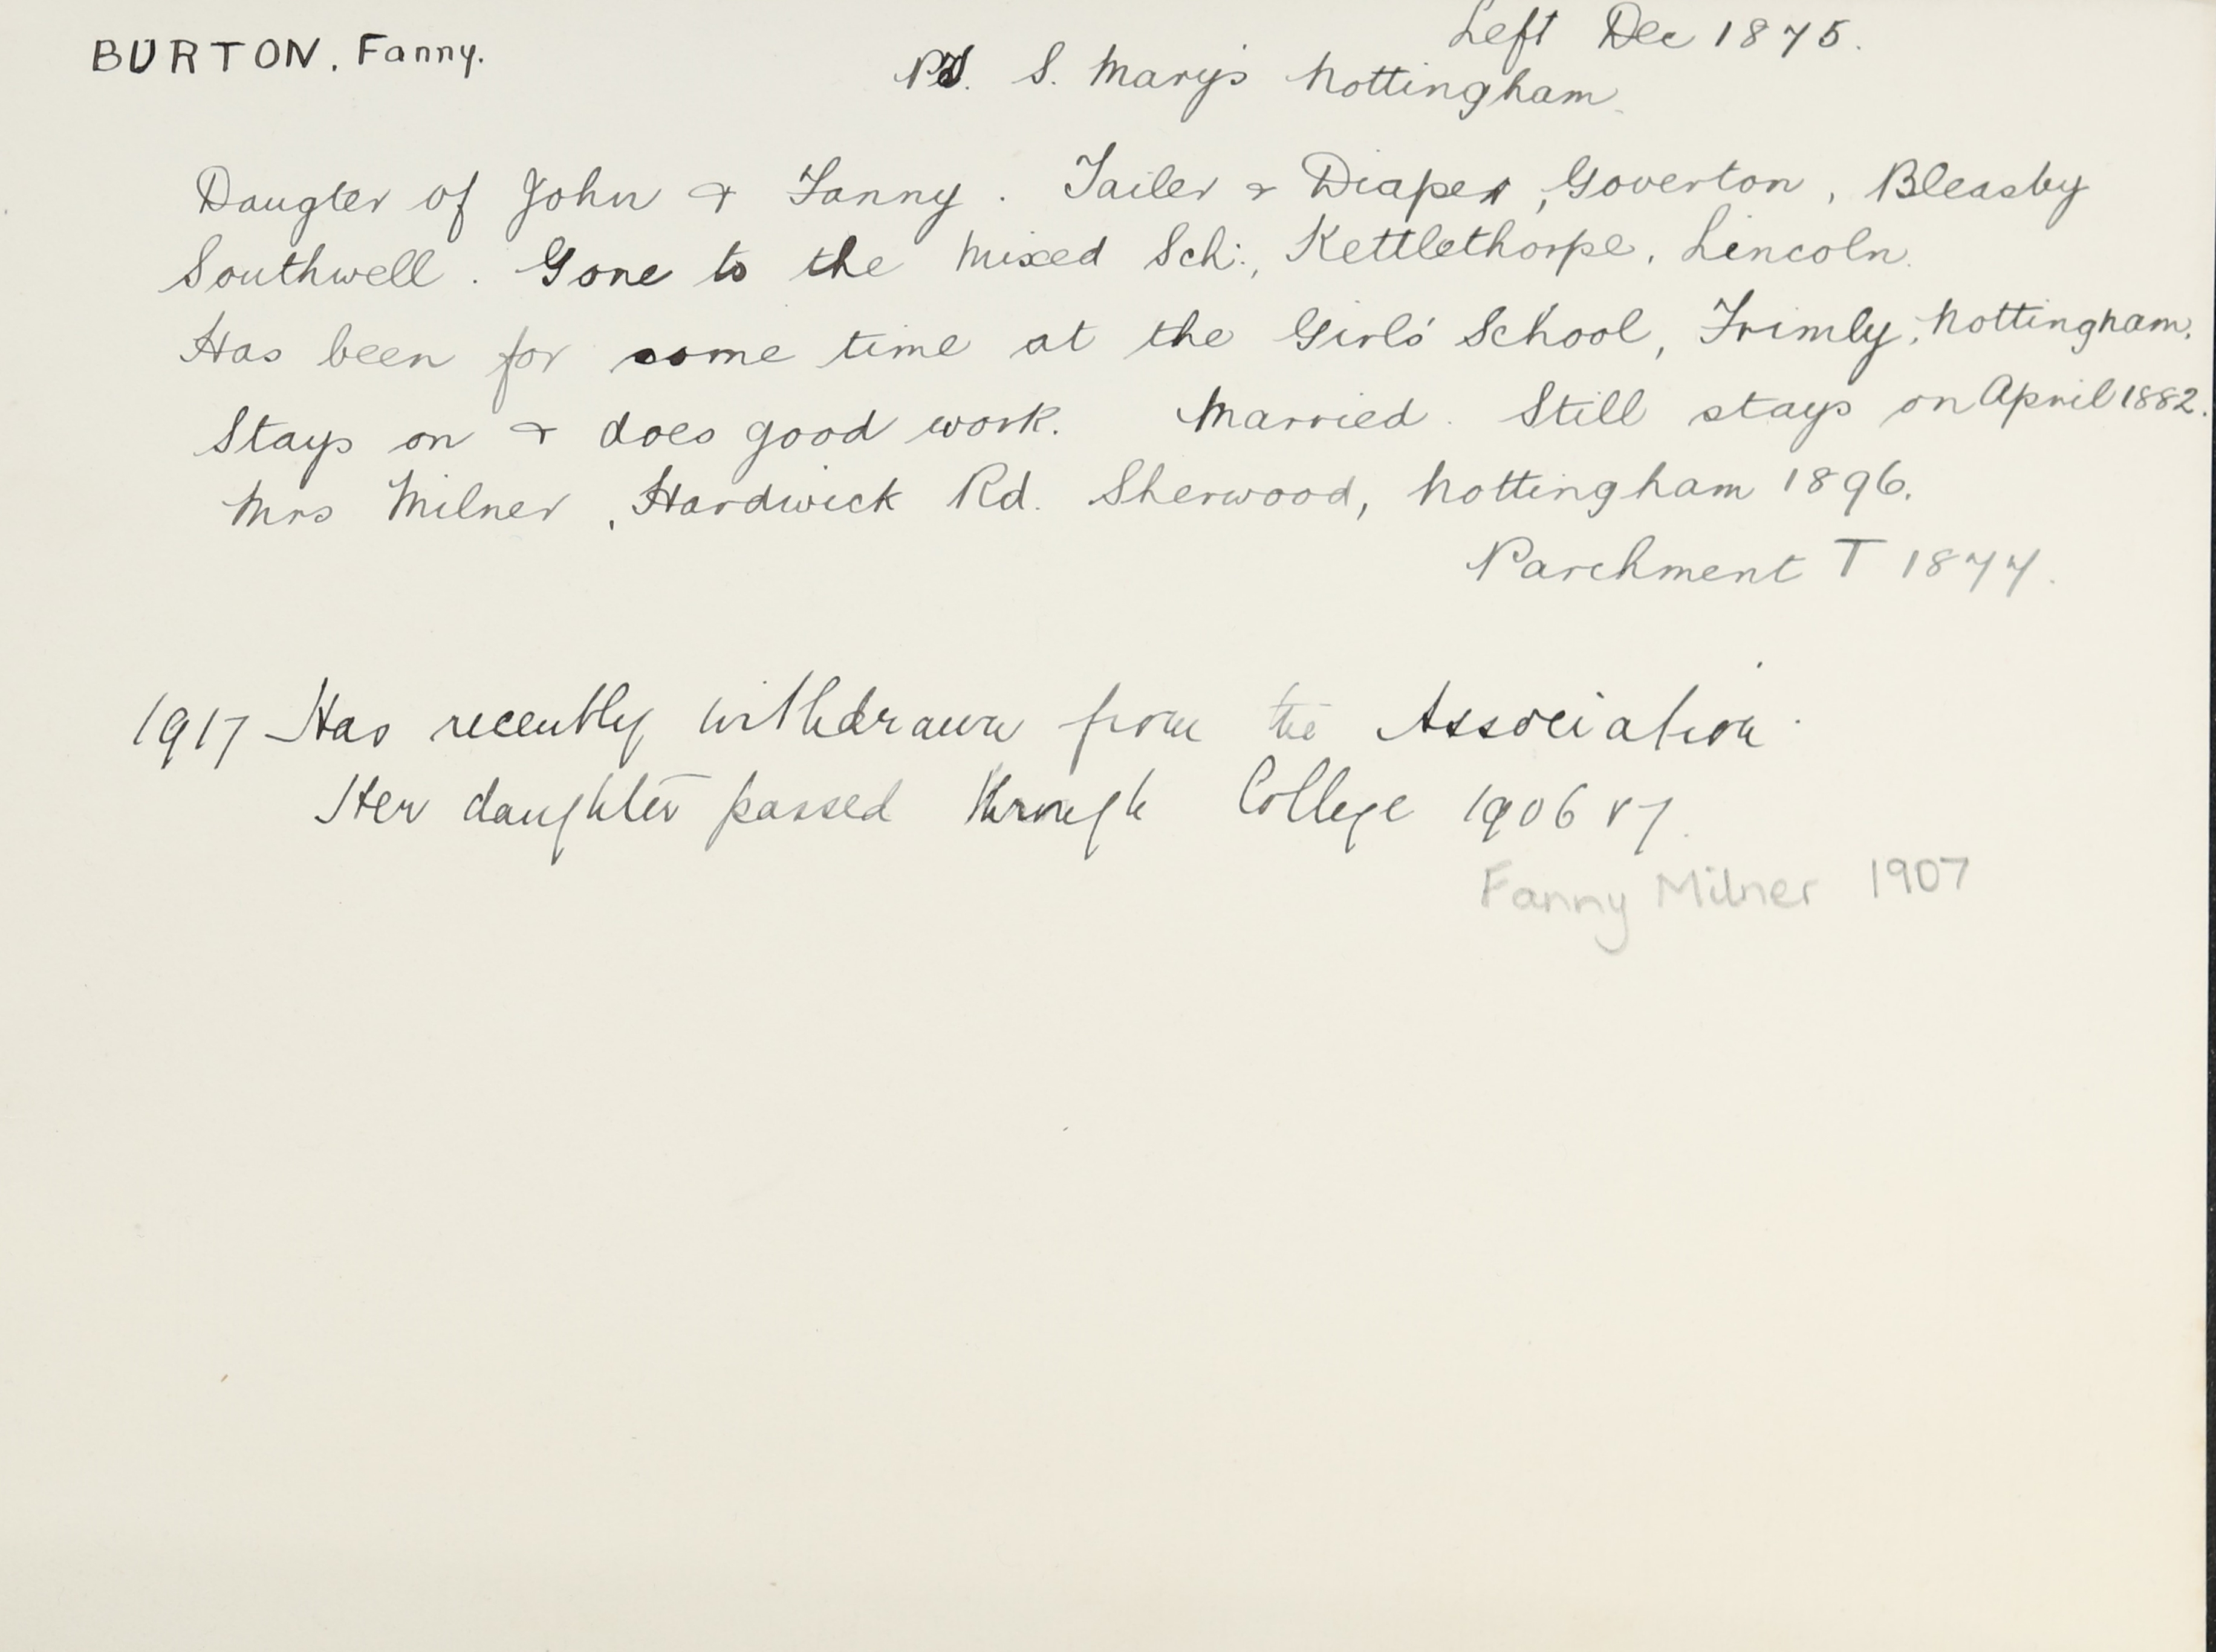 Left Dec 1875.
BURTON, Fanny.
S. Mary's Nottingham.
Daugter of John & Fanny. Tailer & Diaper, Goverton, Bleasby
Southwell. Gone to the Mixed Sch:, Kettlethorpe, Lincoln.
Has been for some time at the Girls' School, Trimly, Nottingham.
Stays on & does good work. Married. Still stays on April 1882.
Mrs Milner, Hardwick Rd. Sherwood, Nottingham 1896.
Parchment T 1877.
1917 Has recently withdrawn from the Association.
Her daughter passed through College 1906 & 7.
Fanny Milner 1907